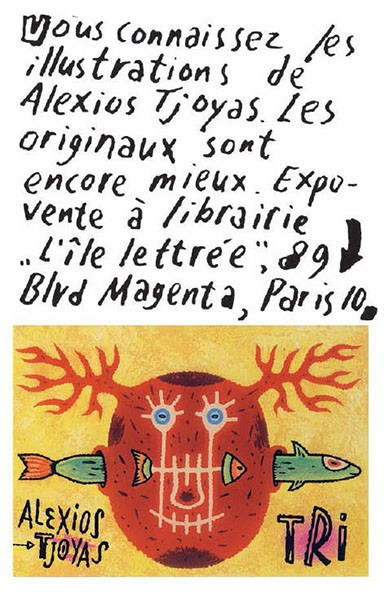 Vous connaissez les
illustrations de
Alexios Tjoyas. Les
originaux sont
encore mieux. Expo-
vente à librairie
„L'île lettrée", 89
Blvd Magenta, Paris 10.
ALEXIOS
TJOYAS
TRi